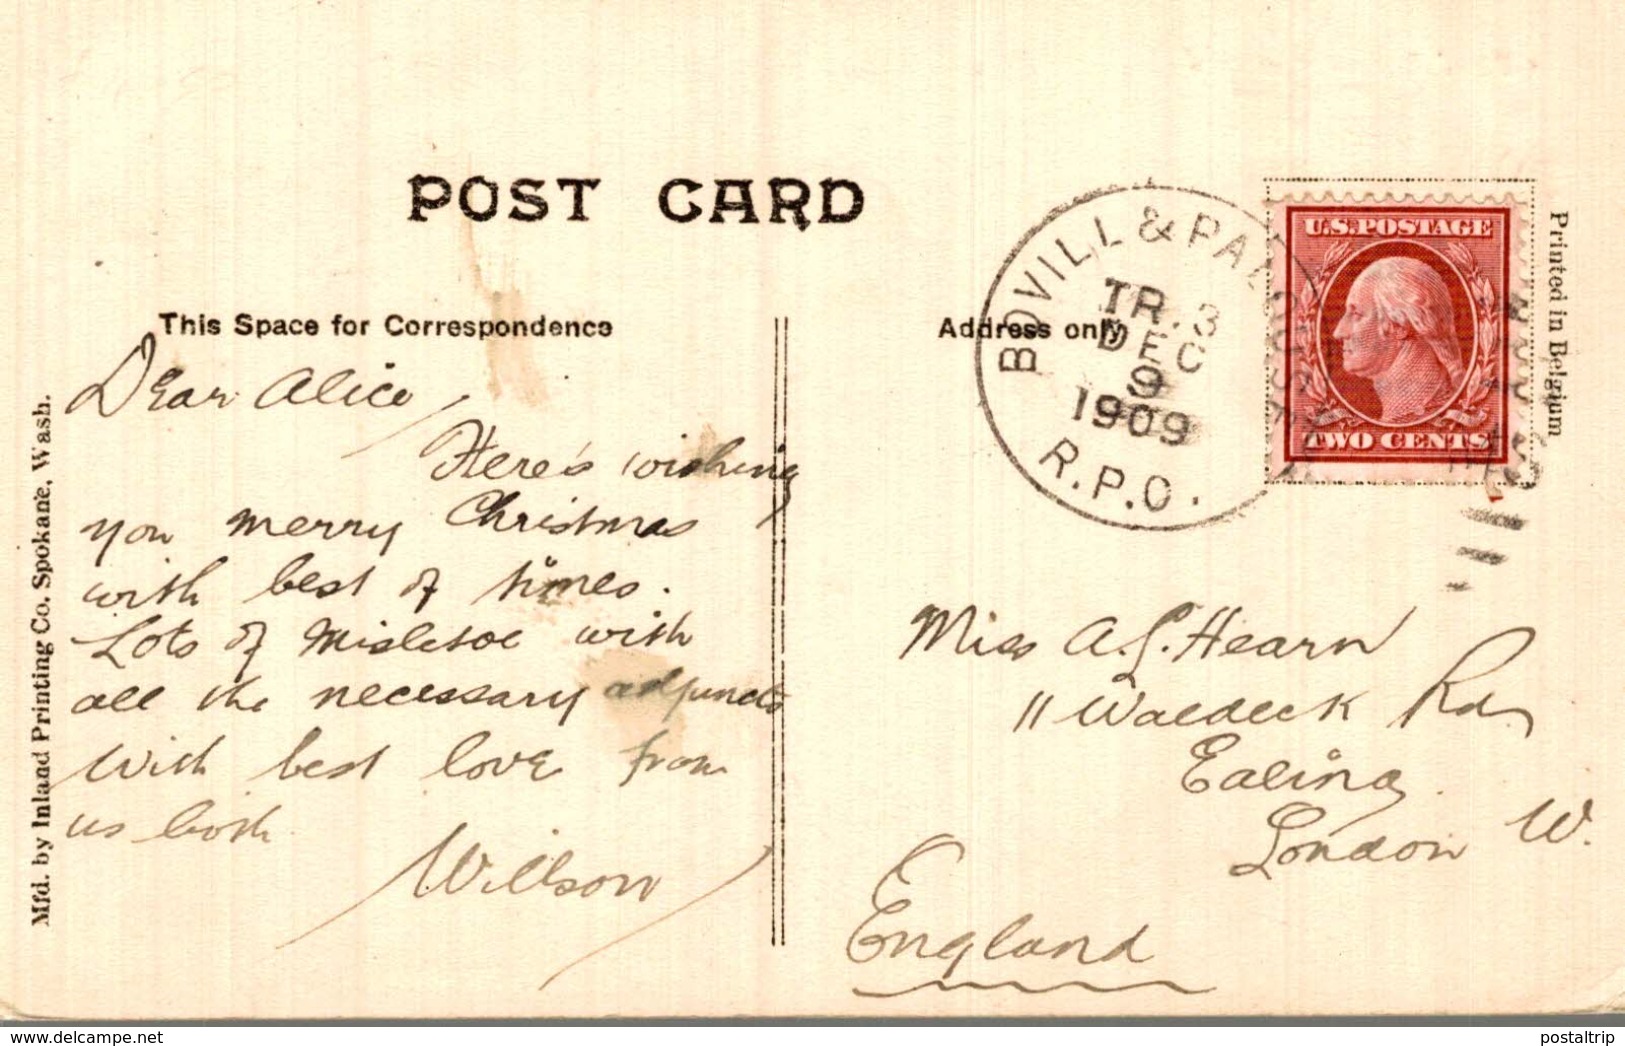 POST CARD
This Space for Correspondence
Dear Alice,
Here's wishing
you merry Christmas
with best of times.
Lots of Misletoe with
all the necessary adjuncts
With best love from
us both
Willson
Mfd. by Inland Printing Co. Spokane, Wash.
Address only
BOVILL & PALOUSE
TR. 3
DEC
9
1909
R.P.O.
U.S. POSTAGE
TWO CENTS
Printed in Belgium
Miss A.L. Hearn
11 Waldeck Rd,
Ealing.
London W.
England
delcampe.net
postaltrip